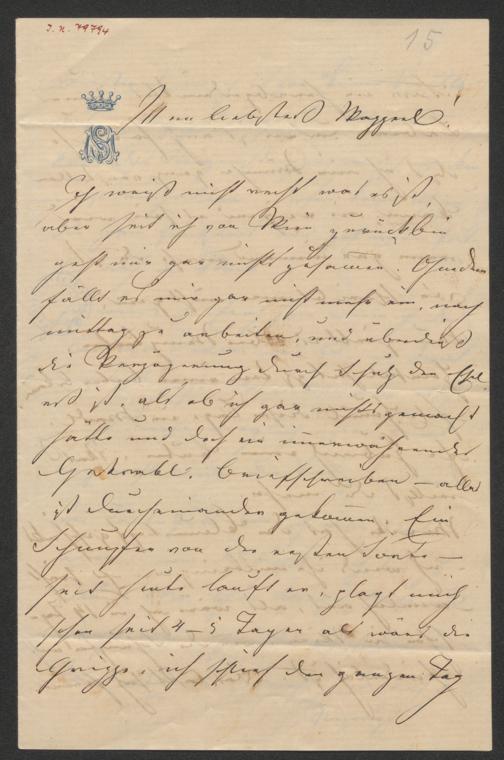 I. N. 79794
15
Mein liebster Moggerl!
Ich weiß nicht recht was es ist,
aber seit ich von Wien zurückbin
geht mir gar nichts zusammen.
fällt es mir gar nicht mehr ein, nach
mittag zu arbeiten, und überdieß
die Verzögerung durch Schutz den
es ist, als ob ich gar nichts gemacht
hätte und doch ein immerwährendes
Gekrabbl. Briefschreiben – alles
ist durcheinander gekommen. Ein
Schnupfen von der ersten Sorte –
seit heute lauft er, plagt mich
schon seit 4–5 Tagen als wärs die
Grippe, ich schlief den ganzen Tag